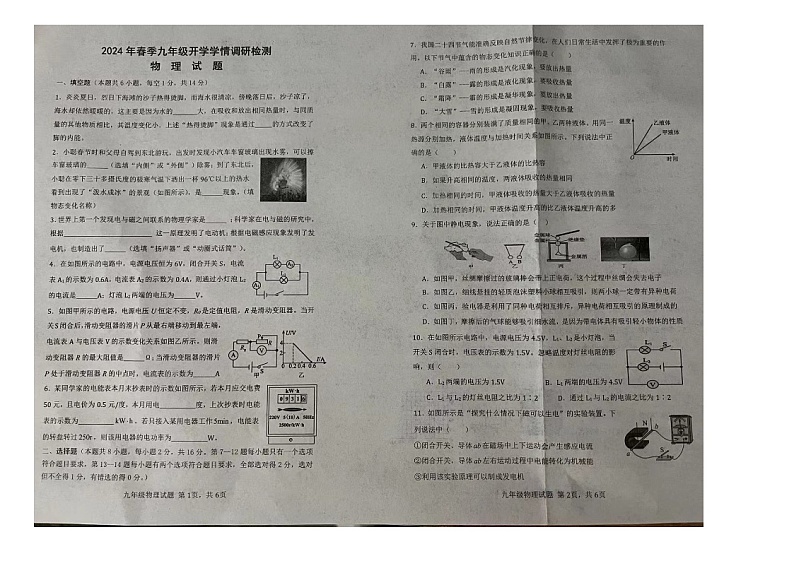 2024年春季九年级开学学情调研检测
物 理 试 题
一、填空题(本题共6小题，每空1分，共14分)
1．炎炎夏日，烈日下海滩的沙子热得烫脚，而海水很清凉，傍晚落日后，沙子凉了，
海水却依然暖暖的，这主要是因为水的______大，在吸收和放出相同热量时，与同质
量的其他物质相比，其温度变化小。上述“热得烫脚”现象是通过____的方式改变了
脚的内能。
2．小聪春节时和父母自驾到东北游玩，出发时发现小汽车车窗玻璃出现水雾，可以擦
车窗玻璃的______(选填“内侧”或“外侧”)除雾；到了东北后，
小聪在零下三十多摄氏度的极寒气温下洒出一杯96℃以上的热水
看到出现了“泼水成冰”的景观(如图所示)，是______现象。(填
物态变化名称)
3.世界上第一个发现电与磁之间联系的物理学家是______；科学家在电与磁的研究中，
根据____________________这一原理发明了电动机；根据电磁感应现象发明了发
电机，也制造出了______(选填“扬声器”或“动圈式话筒”)。
4．在如图所示的电路中，电源电压恒为6V，闭合开关S，电流
表A₁的示数为0.6A，电流表A₂的示数为0.4A，则通过小灯泡L₂
的电流是______A；灯泡L₂两端的电压为______V。
L₁
L₂
5．如图甲所示的电路，电源电压U恒定不变，R₀是定值电阻，R是滑动变阻器。当开
关S闭合后,滑动变阻器的滑片P从最右端移动到最左端，
电流表A与电压表V的示数变化关系如图乙所示，则滑
动变阻器R的最大阻值是______Ω；当滑动变阻器的滑片
P处于滑动变阻器R的中点时，电流表的示数为______A
U/V
I/A
0 0.2 0.4 0.6
甲
乙
6．某同学家的电能表本月末抄表时的示数如图所示，若本月应交电费
50元，且电价为0.5元/度，本月用电________度，上次抄表时电能
表的示数为________kW·h。若只接入某用电器工作5min，电能表
的转盘转过250r，则该用电器的电功率为________W。
kW·h
二、选择题(本题共8小题，每小题2分，共16分。第7—12题每小题只有一个选项
符合题目要求，第13—14题每小题有两个选项符合题目要求，全部选对得2分，选对
但不全得1分，有错选的得0分。)
九年级物理试题 第1页，共6页
7．我国二十四节气能准确反映自然节律变化，在人们日常生活中发挥了极为重要的作
用，以下节气中蕴含的物态变化知识正确的是( )
A．“谷雨”——雨的形成是汽化现象，要放出热量
B．“白露”——露的形成是液化现象，要吸收热量
C．“霜降”——霜的形成是凝华现象，要放出热量
D．“大雪”——雪的形成是凝固现象，要吸收热量
8．两个相同的容器分别装满了质量相同的甲、乙两种液体，用同一
热源分别加热，液体温度与加热时间关系如图所示，下列说法中正
确的是( )
A．甲液体的比热容大于乙液体的比热容
B．如果升高相同的温度，两液体吸收的热量相同
C．加热相同的时间，甲液体吸收的热量大于乙液体吸收的热量
D．加热相同的时间，甲液体温度升高的比乙液体温度升高的多
温度
乙液体
甲液体
时间
9．关于图中静电现象，说法正确的是( )
金属球
金属杆
绝缘垫
金属箔
甲
A B
A．如图甲，丝绸摩擦过的玻璃棒会带上正电荷，这个过程中丝绸会失去电子
B．如图乙，细线悬挂的轻质泡沫塑料小球相互吸引，则两小球一定带有异种电荷
C．如图丙，验电器是利用了同种电荷相互排斥，异种电荷相互吸引的原理制成的
D．如图丁，摩擦后的气球能够吸引细水流，是因为带电体具有吸引轻小物体的性质
10．在如图所示电路中，电源电压为4.5V，L₁、L₂是小灯泡，当
开关S闭合时，电压表的示数为1.5V，忽略温度对灯丝电阻的影
响，则( )
A．L₂两端的电压为1.5V B．L₁两端的电压为4.5V
C．L₁与L₂的灯丝电阻之比为1：2 D．通过L₁与L₂的电流之比为1：2
11．如图所示是“探究什么情况下磁可以生电”的实验装置，下
列说法中( )
①闭合开关，导体ab在磁场中上下运动会产生感应电流
②闭合开关，导体ab左右运动过程中电能转化为机械能
③利用该实验原理可以制成发电机
九年级物理试题 第2页，共6页